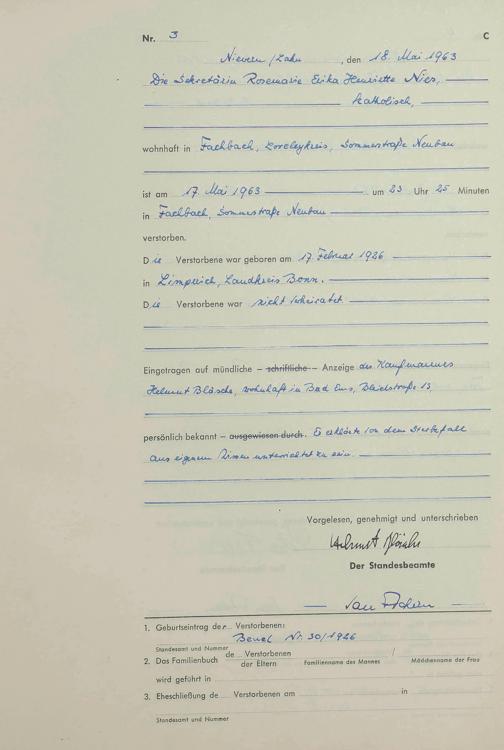 Nr. 3 C
Nievern/Lahn, den 18. Mai 1963
Die Sekretärin Rosemarie Erika Henriette Nies,
katholisch,
wohnhaft in Fachbach, Loreleykreis, Sommerstraße Neubau
ist am 17. Mai 1963 um 23 Uhr 25 Minuten
in Fachbach, Sommerstraße Neubau
verstorben.
Die Verstorbene war geboren am 17. Februar 1926
in Limperich, Landkreis Bonn.
Die Verstorbene war nicht verheiratet
Eingetragen auf mündliche – schriftliche – Anzeige des Kaufmannes
Helmut Bläsche, wohnhaft in Bad Ems, 13
persönlich bekannt – ausgewiesen durch. Er erklärte von dem Sterbefall
aus eigenem Wissen unterrichtet zu sein.
Vorgelesen, genehmigt und unterschrieben
Helmut
Der Standesbeamte
1. Geburtseintrag der Verstorbenen:
Beuel Nr. 30/1926
Standesamt und Nummer
2. Das Familienbuch de Verstorbenen /
der Eltern Familienname des Mannes Mädchenname der Frau
wird geführt in
3. Eheschließung de Verstorbenen am in
Standesamt und Nummer